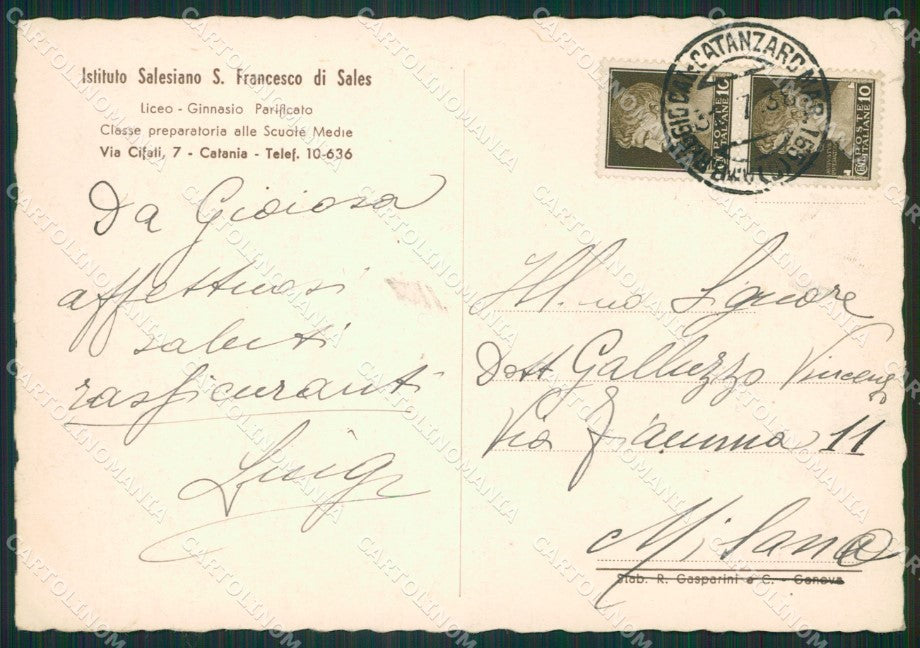 Istituto Salesiano S. Francesco di Sales
Liceo - Ginnasio Parificato
Classe preparatoria alle Scuole Medie
Via Cifali, 7 - Catania - Telef. 10-636
Da Gioiosa
affettuosi
saluti
rassicuranti
Luigi
POSTE ITALIANE
CENT. 10
POSTE ITALIANE
CENT. 10
CATANZARO MAR. 163
Ill.mo Signore
Dott Galluzzo Vincenz
Via Fiamma 11
Milano
Stab. R. Gasparini e C. - Genova
CARTOLINOMANIA